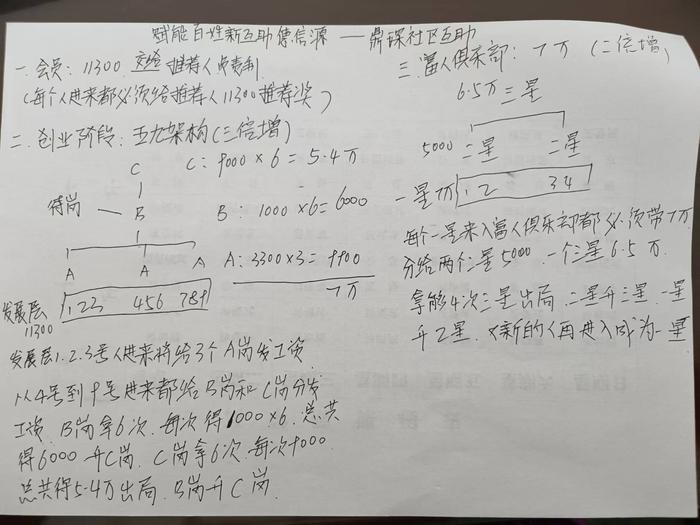 赋能百姓新互助 信源——鼎琛社区互助
一. 会员: 11300. 交给推荐人
(每个人进来都必须给推荐人11300推荐奖)
二. 创业阶段: 五九架构(三倍增)
C C: 9000×6=5.4万
待岗 — B B: 1000×6=6000
A A A A: 3300×3=9900
7万
发展层 1.2 3 4 5 6 7 8 9
11300
发展层1.2.3号人进来将给3个A岗发工资
从4号到9号进来都给B岗和C岗分发
工资. B岗拿6次. 每次得1000×6. 总共
得6000 升C岗. C岗拿6次. 每次9000
总共得5.4万出局. B岗升C岗.
三. 富人俱乐部: 7万 (二倍增)
6.5万三星
5000 二星 二星
一星7万 1.2 3 4
每个二星来入富人俱乐部都必须带7万
分给两个二星5000. 一个三星6.5万.
拿够4次三星出局. 二星升三星. 一星
升2星. 又新的人再进入成为一星